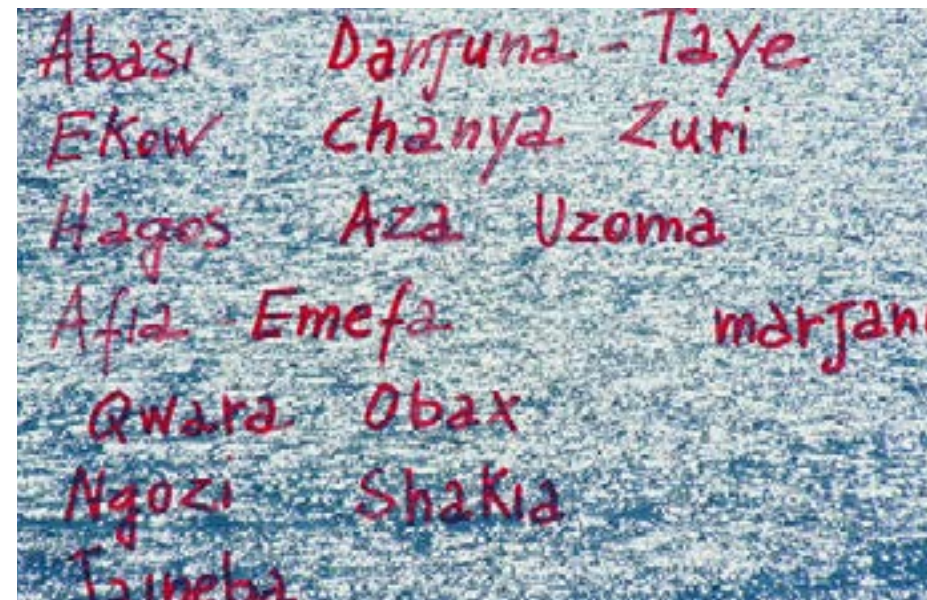 Abasi Danjuna - Taye
Ekow Chanya Zuri
Hagos Aza Uzoma
Afia - Emefa marjani
Qwara Obax
Ngozi Shakia